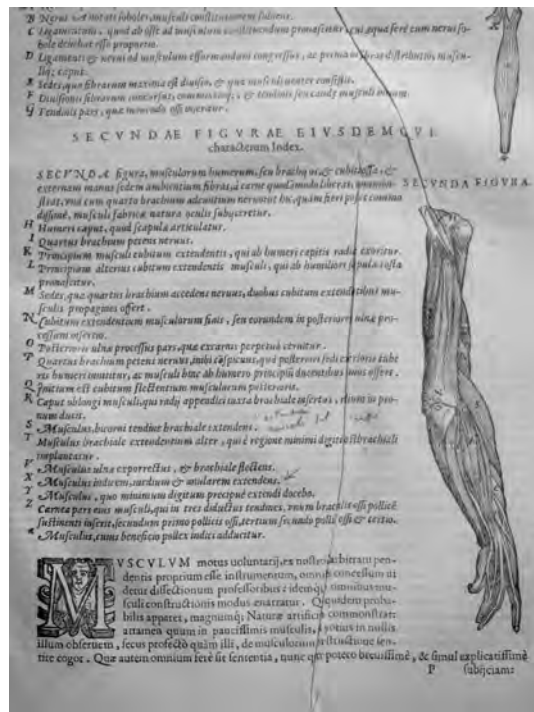 B Nervus
C Ligamentum, quod ab osse ad musculum constituendum pronascitur, cui, aquæ ferè cum neruo so-
bole demibat
D Ligamenti & nerui ad musculum efformandum congressus, ac prima in fibras distributio, muscu-
liq; caput.
E Sedes, qua fibrarum maxima est diuisio, & qua musculi uenter consistit.
F Diuisionis fibrarum concursus, & tendinis seu caudæ musculi initium.
G Tendinis pars, quæ mouendo ossi inseritur.
SECVNDAE FIGVRAE EIVSDEMQVE
characterum Index.
SECVNDA FIGVRA.
SECVNDA figura, musculorum humerum, seu brachij os, & cubiti ossa, &
externam manus sedem ambientium fibras, à carne quodammodo liberas,
strat, unà cum quarto brachium adeuntium neruorum hic, quàm fieri potest
musculi fabrica natura oculis subijceretur.
H Humeri caput, quod scapulæ articulatur.
I Quartus brachium petens neruus.
K Principium musculi cubitum extendentis, qui ab humeri capitis radice exoritur.
L Principium alterius cubitum extendentis musculi, qui ab humiliori scapulæ costa
pronascitur.
M Sedes, qua quartus brachium accedens neruus, duobus cubitum extendentibus mu-
sculis propagines offert.
N Cubitum extendentium musculorum finis, seu eorundem in posteriorem ulnæ pro-
cessum insertio.
O Posterioris ulnæ processus pars, quæ excarnis perpetuò cernitur.
P Quartus brachium petens neruus, mihi conspicuus, quà posteriori sedi exterioris tube-
ris humeri innititur, ac musculis hinc ab humero principium ducentibus ramos offert.
Q Initium est cubitum flectentium musculorum posterioris.
R Caput oblongi musculi, qui radij appendici iuxta brachiale insertus, illum in pro-
num ducit.
S Musculus, bicorni tendine brachiale extendens.
T Musculus brachiale extendentium alter, qui è regione minimi digiti postbrachiali
implantatur.
V Musculus ulnæ exporrectus, & brachiale flectens.
X Musculus indicem, medium & anularem extendens.
Y Musculus, quo minimum digitum præcipuè extendi docebo.
Z Carnea pars eius musculi, qui in tres diductus tendines, unum brachialis ossi pollicem
sustinenti inserit, secundum primo pollicis ossi, tertium secundo pollicis ossi & tertio.
Musculus, cuius beneficio pollex indici adducitur.
MVSCVLVM motus uoluntarij, ex nostro arbitrio pen-
dentis proprium esse instrumentum, omnibus concessum ui-
detur dissectionum professoribus: idemq; omnibus mu-
sculi constructionis modus enarratur. Qui quidem proba-
bilis apparet, magnumq; Naturæ artificium commonstrat:
attamen quum in paucissimis musculis, & potius in nullis
illum obseruem, secus profectò quàm illi, de musculorum constructione sen-
tire cogor. Quæ autem omnium ferè sit sententia, nunc quò potero breuissimè, & simul explicatissimè
P subijciam: